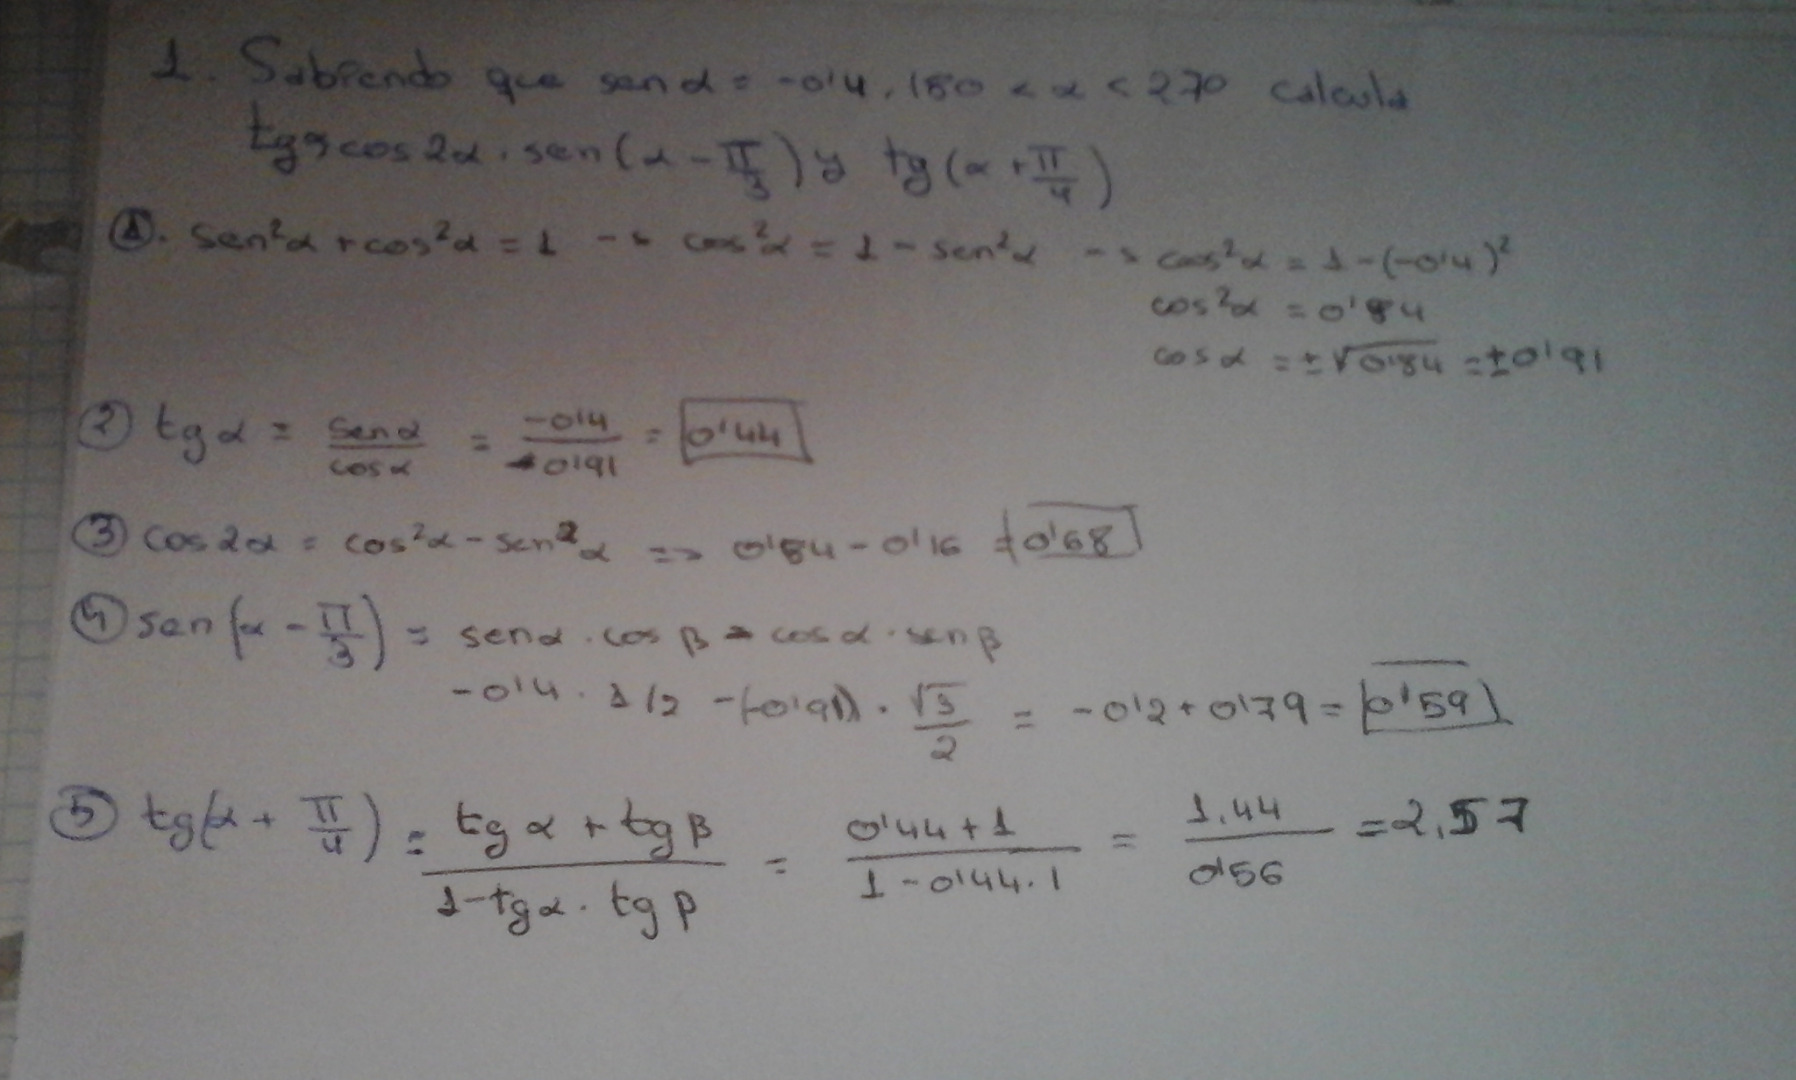 1. Sabiendo que sen α = -0'4, 180 < α < 270 calcula
tgα, cos 2α, sen(α - π/3) y tg(α + π/4)
①. sen²α + cos²α = 1 -> cos²α = 1 - sen²α -> cos²α = 1-(-0'4)²
cos²α = 0'84
cos α = ±√0'84 = ±0'91
② tg α = senα/cosα = -0'4/-0'91 = 0'44
③ cos 2α = cos²α - sen²α => 0'84 - 0'16 = 0'68
④ sen(α - π/3) = senα · cos β - cos α · sen β
-0'4 · 1/2 -(-0'91) · √3/2 = -0'2 + 0'79 = 0'59
⑤ tg(α + π/4) = tg α + tg β/1-tgα · tg β = 0'44 + 1/1 - 0'44 · 1 = 1,44/0'56 = 2,57